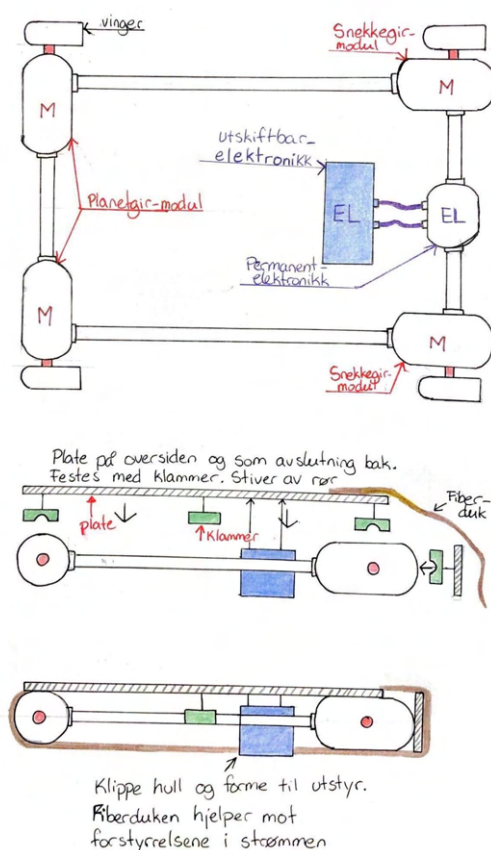 vinger
Snekkegir-
modul
M
M
utskiftbar-
elektronikk
EL
EL
Planetgir-modul
Permanent-
elektronikk
M
M
Snekkegir-
modul
Plate på oversiden og som avslutning bak.
Festes med klammer. Stiver av rør
Fiber-
duk
plate
Klammer
Klippe hull og forme til utstyr.
Fiberduken hjelper mot
forstyrrelsene i strømmen